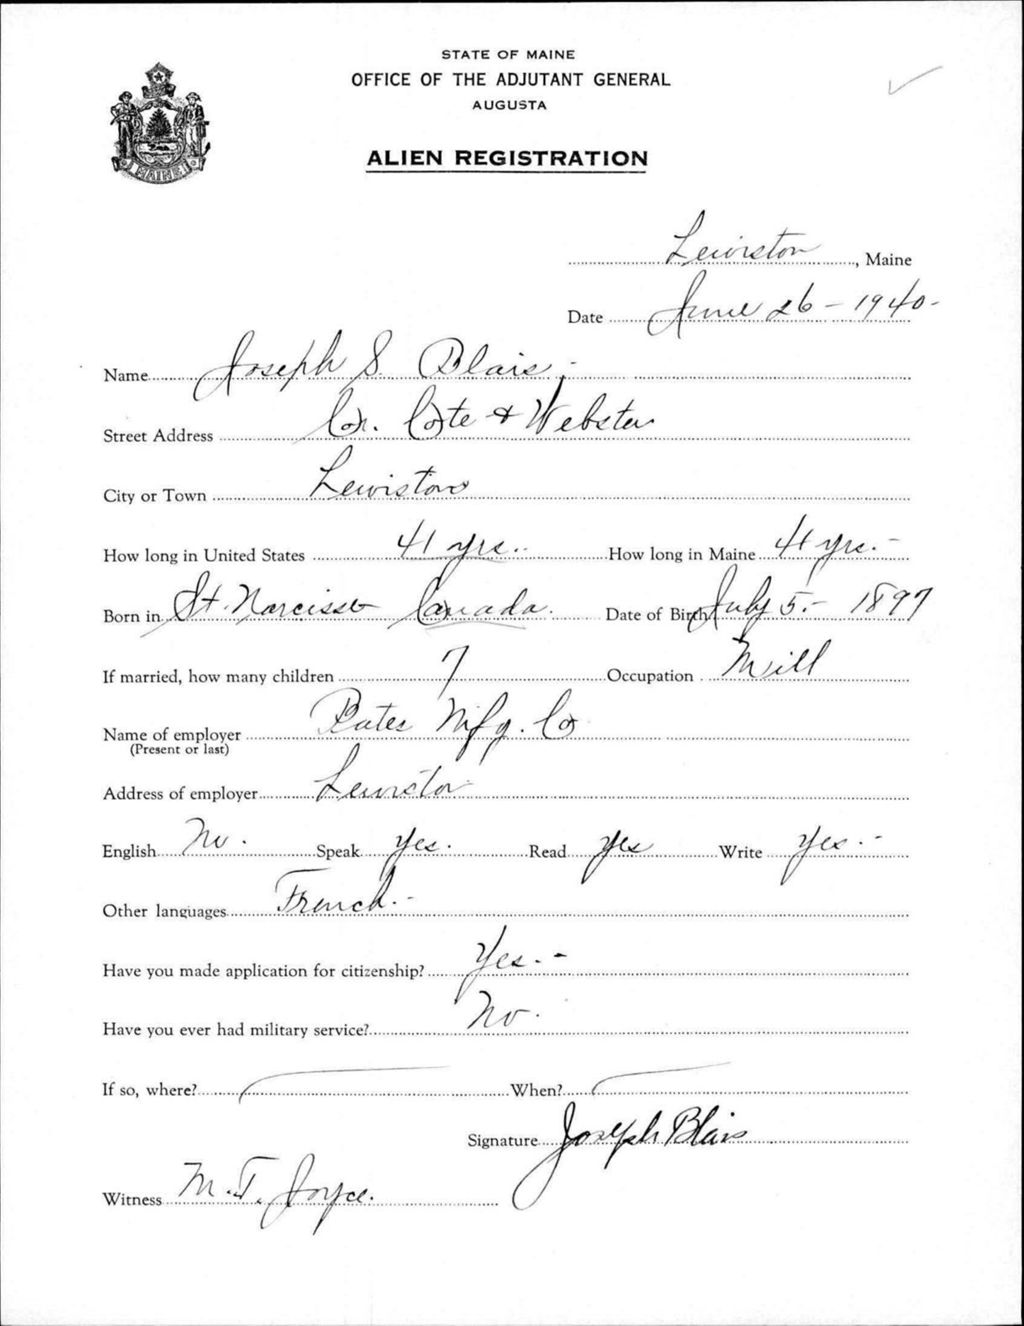 STATE OF MAINE
OFFICE OF THE ADJUTANT GENERAL
AUGUSTA
ALIEN REGISTRATION
MAINE
Lewiston, Maine
Date June 26 - 1940 -
Name Joseph S. Blais -
Street Address Cor. Cote & Webster
City or Town Lewiston
How long in United States 41 yrs. How long in Maine 41 yrs. -
Born in St. Narcisse Canada. Date of Birth July 5. - 1897
If married, how many children 7 Occupation Mill
Name of employer Bates Mfg. Co
(Present or last)
Address of employer Lewiston
English No. Speak Yes. Read Yes Write Yes. -
Other languages French. -
Have you made application for citizenship? Yes. -
Have you ever had military service? No.
If so, where? When?
Signature Joseph Blais
Witness M. T. Joyce.